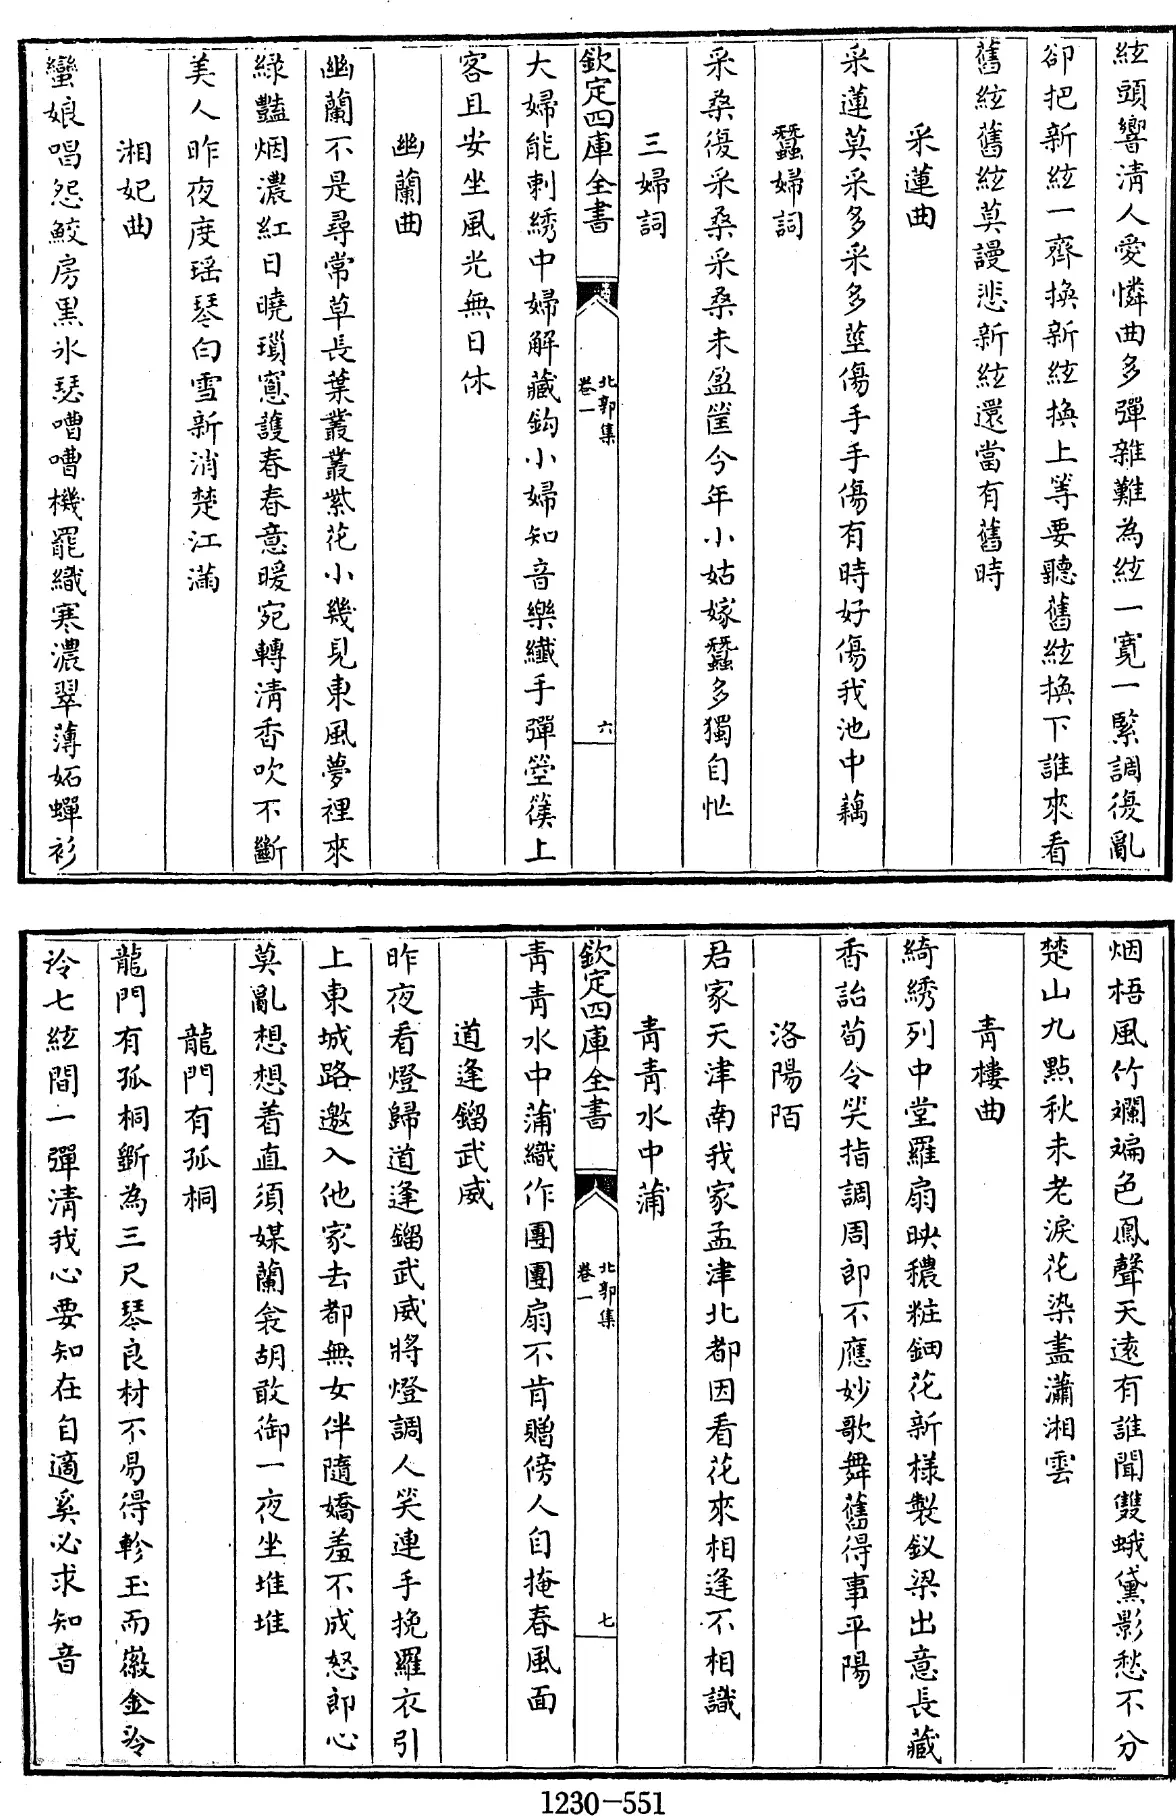 絃頭響清人愛憐曲多彈雜難為絃一寛一緊調復亂
卻把新絃一齊換新絃換上等要聽舊絃換下誰來看
舊絃舊絃莫謾悲新絃還當有舊時
采蓮曲
采蓮莫采多采多莖傷手手傷有時好傷我池中藕
蠶婦詞
采桑復采桑采桑未盈筐今年小姑嫁蠶多獨自忙
三婦詞
欽定四庫全書
北郭集
卷一
六
大婦能刺綉中婦解藏鈎小婦知音樂纎手彈箜篌上
客且安坐風光無日休
幽蘭曲
幽蘭不是尋常草長葉叢叢紫花小幾見東風夢裡來
緑豔烟濃紅日曉瑣窻護春春意暖宛轉清香吹不斷
美人昨夜度瑶琴白雪新消楚江滿
湘妃曲
蠻娘唱怨鮫房黒氷瑟嘈嘈機罷織寒濃翠薄妬蟬衫
烟梧風竹斕斒色鳳聲天逺有誰聞雙蛾黛影愁不分
楚山九點秋未老淚花染盡瀟湘雲
青樓曲
綺綉列中堂羅扇映穠粧鈿花新様製釵梁出意長藏
香詒荀令笑指調周郎不應妙歌舞舊得事平陽
洛陽陌
君家天津南我家孟津北都因看花來相逢不相識
青青水中蒲
欽定四庫全書
北郭集
卷一
七
青青水中蒲織作團團扇不肯贈傍人自掩春風面
道逢鎦武威
昨夜看燈歸道逢鎦武威將燈調人笑連手挽羅衣引
上東城路邀入他家去都無女伴隨嬌羞不成怒郎心
莫亂想想着直須媒蘭衾胡敢御一夜坐堆堆
龍門有孤桐
龍門有孤桐斵為三尺琴良材不易得軫玉而徽金泠
泠七絃間一彈清我心要知在自適奚必求知音
1230-551